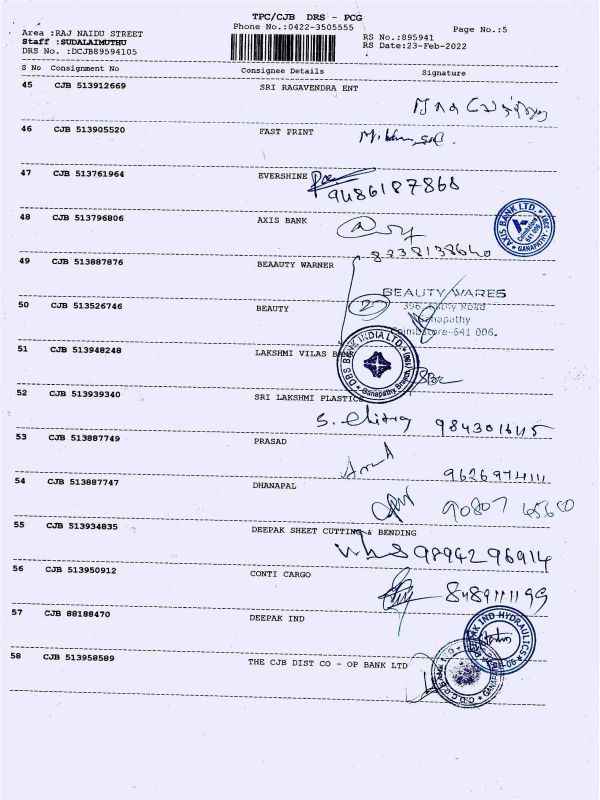 TPC/CJB DRS - PCG
Phone No.:0422-3505555
Page No.:5
Area :RAJ NAIDU STREET
Staff :SUDALAIMUTHU
DRS No. :DCJB89594105
RS No.:895941
RS Date:23-Feb-2022
S No Consignment No Consignee Details Signature
45 CJB 513912669 SRI RAGAVENDRA ENT
46 CJB 513905520 FAST PRINT
47 CJB 513761964 EVERSHINE
9486187868
48 CJB 513796806 AXIS BANK
AXIS BANK LTD. Coimbatore 641 006 GANAPATHY
8238138640
49 CJB 513887876 BEAAUTY WARNER
50 CJB 513526746 BEAUTY
BEAUTY WARES
396, Sathy Road
Ganapathy
Coimbatore-641 006.
51 CJB 513948248 LAKSHMI VILAS BANK
DBS BANK INDIA LTD. Ganapathy Branch
52 CJB 513939340 SRI LAKSHMI PLASTICS
S. Chitra
53 CJB 513887749 PRASAD
54 CJB 513887747 DHANAPAL
55 CJB 513934835 DEEPAK SHEET CUTTING & BENDING
9894296914
56 CJB 513950912 CONTI CARGO
8489111199
57 CJB 88188470 DEEPAK IND
IND HYDRAULICS
58 CJB 513958589 THE CJB DIST CO - OP BANK LTD